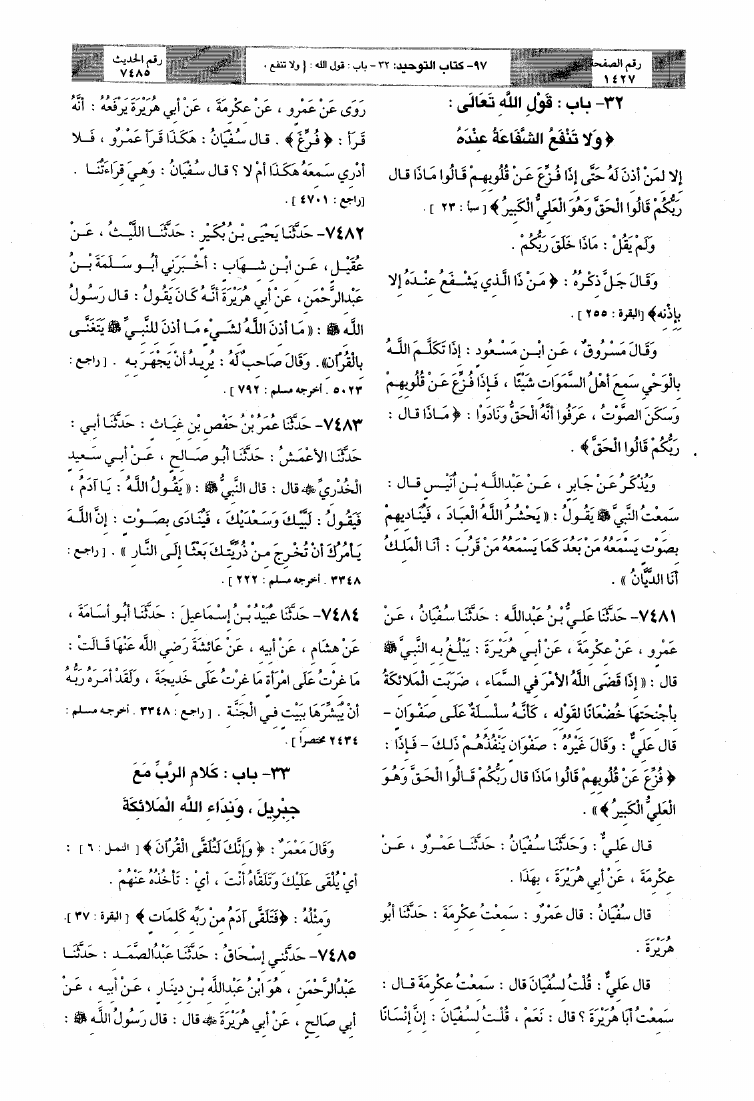 رقم الصفحة
١٤٢٧
٩٧- كتاب التوحيد: ٣٢- باب: قول الله: ﴿ولا تنفع .
رقم الحديث
٧٤٨٥
٣٢- باب : قَوْلِ اللَّهِ تَعَالَى :
﴿وَلا تَنْفَعُ الشَّفَاعَةُ عِنْدَهُ
إِلا لِمَنْ أَذِنَ لَهُ حَتَّى إِذَا فُزِّعَ عَنْ قُلُوبِهِمْ قَالُوا مَاذَا قَالَ
رَبُّكُمْ قَالُوا الْحَقَّ وَهُوَ الْعَلِيُّ الْكَبِيرُ﴾ [ سبأ : ٢٣ ] .
وَلَمْ يَقُلْ : مَاذَا خَلَقَ رَبُّكُمْ .
وَقَالَ جَلَّ ذِكْرُهُ : ﴿ مَنْ ذَا الَّذِي يَشْفَعُ عِنْدَهُ إِلا
بِإِذْنِهِ﴾ [البقرة : ٢٥٥ ] .
وَقَالَ مَسْرُوقٌ ، عَنِ ابْنِ مَسْعُودٍ : إِذَا تَكَلَّمَ اللَّهُ
بِالْوَحْيِ سَمِعَ أَهْلُ السَّمَوَاتِ شَيْئًا ، فَإِذَا فُزِّعَ عَنْ قُلُوبِهِمْ
وَسَكَنَ الصَّوْتُ ، عَرَفُوا أَنَّهُ الْحَقُّ وَنَادَوْا : ﴿ مَاذَا قَالَ :
رَبُّكُمْ قَالُوا الْحَقَّ ﴾ .
وَيُذْكَرُ عَنْ جَابِرٍ ، عَنْ عَبْدِاللَّهِ بْنِ أُنَيْسٍ قَالَ :
سَمِعْتُ النَّبِيَّ ﷺ يَقُولُ : « يَحْشُرُ اللَّهُ الْعِبَادَ ، فَيُنَادِيهِمْ
بِصَوْتٍ يَسْمَعُهُ مَنْ بَعُدَ كَمَا يَسْمَعُهُ مَنْ قَرُبَ : أَنَا الْمَلِكُ
أَنَا الدَّيَّانُ » .
٧٤٨١- حَدَّثَنَا عَلِيُّ بْنُ عَبْدِاللَّهِ : حَدَّثَنَا سُفْيَانُ ، عَنْ
عَمْرٍو ، عَنْ عِكْرِمَةَ ، عَنْ أَبِي هُرَيْرَةَ : يَبْلُغُ بِهِ النَّبِيَّ ﷺ
قَالَ : « إِذَا قَضَى اللَّهُ الأَمْرَ فِي السَّمَاءِ ، ضَرَبَتِ الْمَلائِكَةُ
بِأَجْنِحَتِهَا خُضْعَانًا لِقَوْلِهِ ، كَأَنَّهُ سِلْسِلَةٌ عَلَى صَفْوَانٍ -
قَالَ عَلِيٌّ : وَقَالَ غَيْرُهُ : صَفْوَانٍ يَنْفُذُهُمْ ذَلِكَ - فَإِذَا :
﴿ فُزِّعَ عَنْ قُلُوبِهِمْ قَالُوا مَاذَا قَالَ رَبُّكُمْ قَالُوا الْحَقَّ وَهُوَ
الْعَلِيُّ الْكَبِيرُ﴾» .
قَالَ عَلِيٌّ : وَحَدَّثَنَا سُفْيَانُ : حَدَّثَنَا عَمْرٌو ، عَنْ
عِكْرِمَةَ ، عَنْ أَبِي هُرَيْرَةَ ، بِهَذَا .
قَالَ سُفْيَانُ : قَالَ عَمْرٌو : سَمِعْتُ عِكْرِمَةَ : حَدَّثَنَا أَبُو
هُرَيْرَةَ .
قَالَ عَلِيٌّ : قُلْتُ لِسُفْيَانَ قَالَ : سَمِعْتُ عِكْرِمَةَ قَالَ :
سَمِعْتُ أَبَا هُرَيْرَةَ ؟ قَالَ : نَعَمْ ، قُلْتُ لِسُفْيَانَ : إِنَّ إِنْسَانًا
رَوَى عَنْ عَمْرٍو ، عَنْ عِكْرِمَةَ ، عَنْ أَبِي هُرَيْرَةَ يَرْفَعُهُ : أَنَّهُ
قَرَأَ : ﴿ فُرِّغَ ﴾ . قَالَ سُفْيَانُ : هَكَذَا قَرَأَ عَمْرٌو ، فَلا
أَدْرِي سَمِعَهُ هَكَذَا أَمْ لا ؟ قَالَ سُفْيَانُ : وَهِيَ قِرَاءَتُنَا .
[راجع : ٤٧٠١ ] .
٧٤٨٢- حَدَّثَنَا يَحْيَى بْنُ بُكَيْرٍ : حَدَّثَنَا اللَّيْثُ ، عَنْ
عُقَيْلٍ ، عَنِ ابْنِ شِهَابٍ : أَخْبَرَنِي أَبُو سَلَمَةَ بْنُ
عَبْدِالرَّحْمَنِ ، عَنْ أَبِي هُرَيْرَةَ أَنَّهُ كَانَ يَقُولُ : قَالَ رَسُولُ
اللَّهِ ﷺ : « مَا أَذِنَ اللَّهُ لِشَيْءٍ مَا أَذِنَ لِلنَّبِيِّ ﷺ يَتَغَنَّى
بِالْقُرْآنِ» . وَقَالَ صَاحِبٌ لَهُ : يُرِيدُ أَنْ يَجْهَرَ بِهِ . [ راجع :
٥٠٢٣ . أخرجه مسلم : ٧٩٢ ] .
٧٤٨٣- حَدَّثَنَا عُمَرُ بْنُ حَفْصِ بْنِ غِيَاثٍ : حَدَّثَنَا أَبِي :
حَدَّثَنَا الأَعْمَشُ : حَدَّثَنَا أَبُو صَالِحٍ ، عَنْ أَبِي سَعِيدٍ
الْخُدْرِيِّ ﷺ قَالَ : قَالَ النَّبِيُّ ﷺ : « يَقُولُ اللَّهُ : يَا آدَمُ ،
فَيَقُولُ : لَبَّيْكَ وَسَعْدَيْكَ ، فَيُنَادَى بِصَوْتٍ : إِنَّ اللَّهَ
يَأْمُرُكَ أَنْ تُخْرِجَ مِنْ ذُرِّيَّتِكَ بَعْثًا إِلَى النَّارِ » . [ راجع :
٣٣٤٨ . أخرجه مسلم : ٢٢٢ ] .
٧٤٨٤- حَدَّثَنَا عُبَيْدُ بْنُ إِسْمَاعِيلَ : حَدَّثَنَا أَبُو أُسَامَةَ ،
عَنْ هِشَامٍ ، عَنْ أَبِيهِ ، عَنْ عَائِشَةَ رَضِيَ اللَّهُ عَنْهَا قَالَتْ :
مَا غِرْتُ عَلَى امْرَأَةٍ مَا غِرْتُ عَلَى خَدِيجَةَ ، وَلَقَدْ أَمَرَهُ رَبُّهُ
أَنْ يُبَشِّرَهَا بِبَيْتٍ فِي الْجَنَّةِ . [ راجع : ٣٣٤٨ . أخرجه مسلم :
٢٤٣٤ مختصراً ] .
٣٣- باب : كَلامِ الرَّبِّ مَعَ
جِبْرِيلَ ، وَنِدَاءِ اللَّهِ الْمَلائِكَةَ
وَقَالَ مَعْمَرٌ : ﴿ وَإِنَّكَ لَتُلَقَّى الْقُرْآنَ ﴾ [ النمل : ٦ ] :
أَيْ يُلْقَى عَلَيْكَ وَتَلَقَّاهُ أَنْتَ ، أَيْ : تَأْخُذُهُ عَنْهُمْ .
وَمِثْلُهُ : ﴿فَتَلَقَّى آدَمُ مِنْ رَبِّهِ كَلِمَاتٍ ﴾ [ البقرة : ٣٧ ].
٧٤٨٥- حَدَّثَنِي إِسْحَاقُ : حَدَّثَنَا عَبْدُالصَّمَدِ : حَدَّثَنَا
عَبْدُالرَّحْمَنِ ، هُوَ ابْنُ عَبْدِاللَّهِ بْنِ دِينَارٍ ، عَنْ أَبِيهِ ، عَنْ
أَبِي صَالِحٍ ، عَنْ أَبِي هُرَيْرَةَ ﷺ قَالَ : قَالَ رَسُولُ اللَّهِ ﷺ :